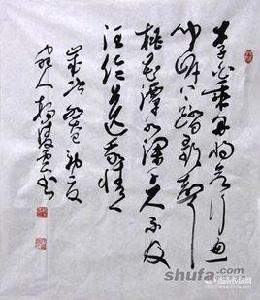 李白乘舟将欲行忽
闻岸上踏歌声
桃花潭水深千尺不及
汪伦送我情
岁次
人 书
shufa.com